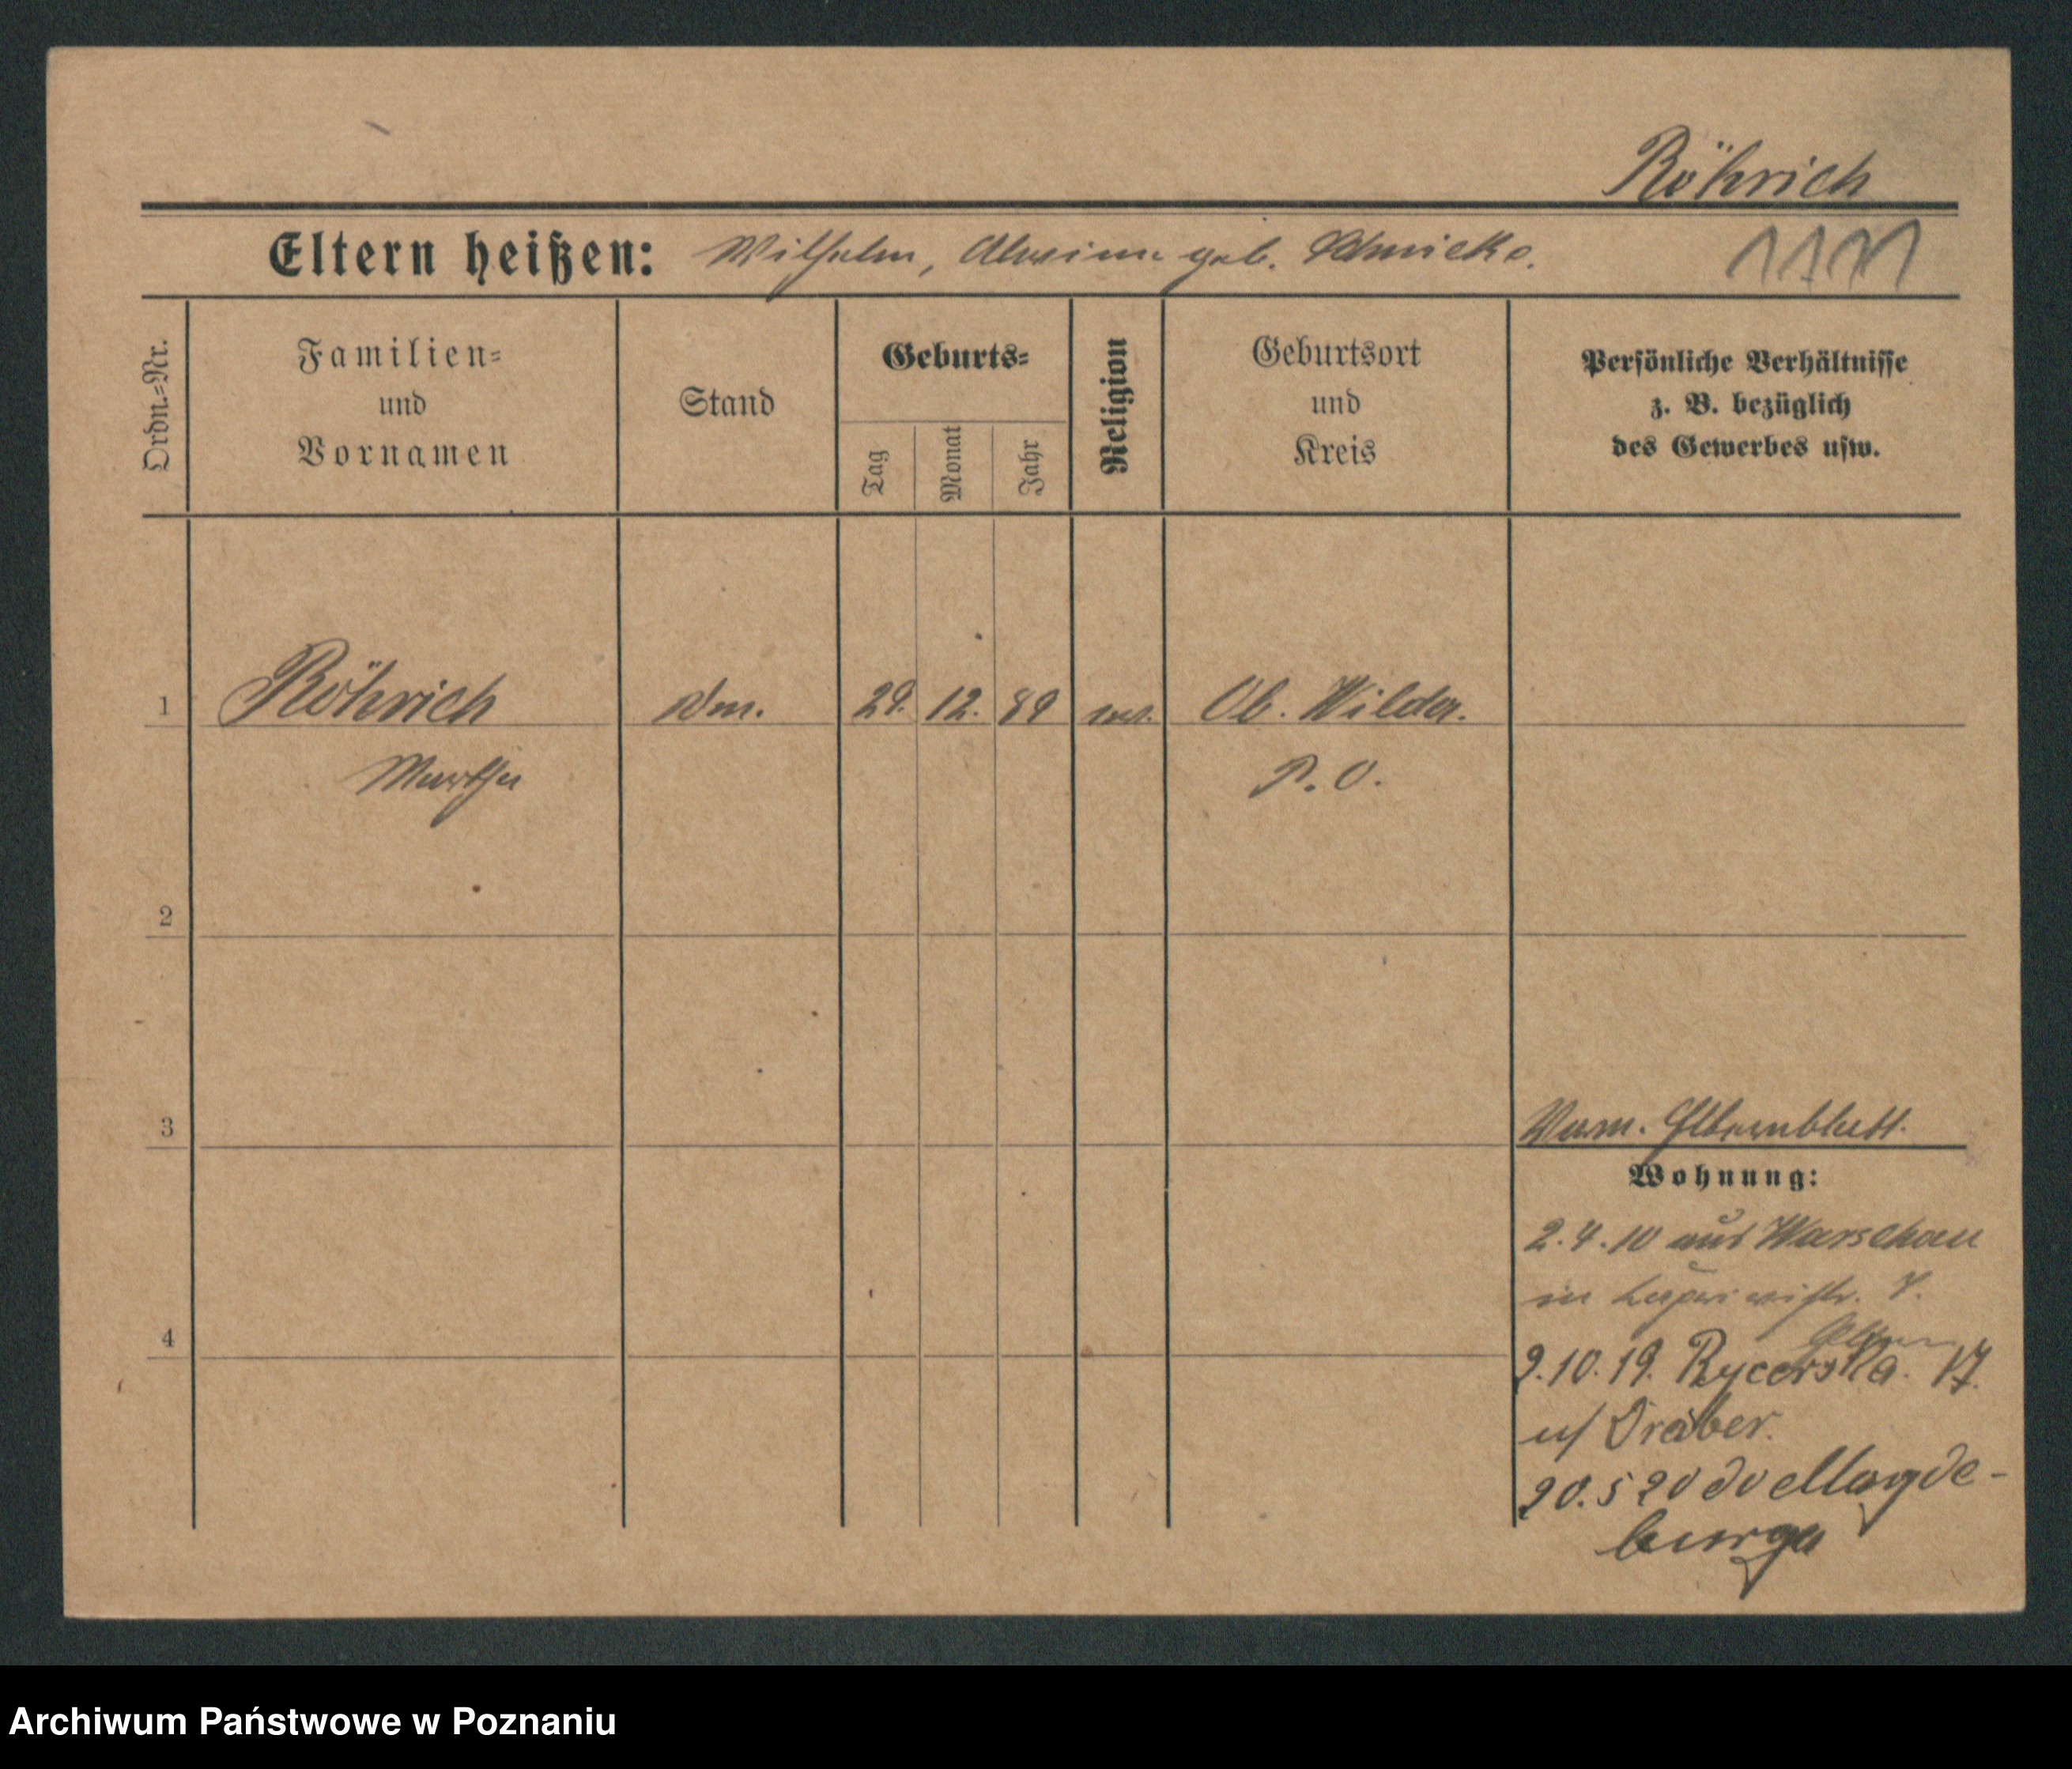 Röhrich
Eltern heißen: Wilhelm, Alwine geb. Schmicke.
Ordn.-Nr.
Familien-
und
Vornamen
Stand
Geburts-
Tag
Monat
Jahr
Religion
Geburtsort
und
Kreis
Persönliche Verhältnisse
z. B. bezüglich
des Gewerbes usw.
1 Röhrich 12. 89 Ob. Wilda.
Martha P. O.
2
3
Elternblatt.
Wohnung:
2.4.10 aus Warschau
in Capriviistr. 7.
4
Eltern
9.10.19. Rycerska. 17
u/ Dräber.
20.5 20 do Magde-
burga
Archiwum Państwowe w Poznaniu